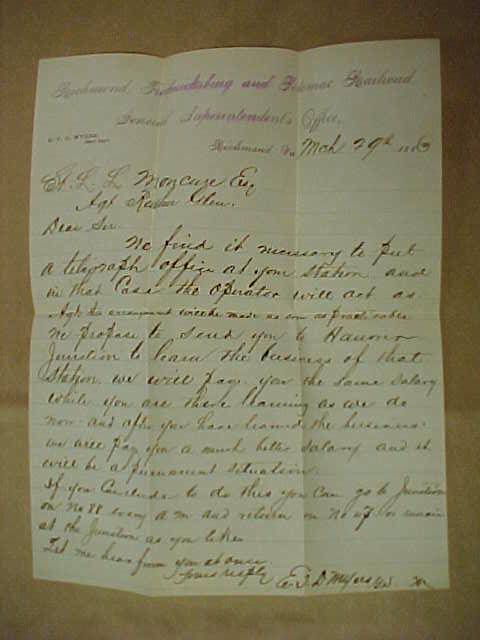 Richmond Fredericksburg and Potomac Railroad
General Superintendents Office,
E. T. D. MYERS
Richmond Va Mch 29th 1883
Mozcure Esq
Agt Glen.
Dear Sir.
We find it necessary to put
a telegraph office at your station and
in that Case the operator will act as
Agt. the arrangement will be made as soon as practicable
We propose to send you to Hanover
Junction to learn the business of that
station we will pay you the same salary
while you are there learning as we do
now and after you have learned the business
we will pay you a much better salary and it
will be a permanent situation.
If you Conclude to do this you Can go to Junction
on No 88 every a m and return on No or remain
at the Junction as you like.
Let me hear from you at once
Yours resptly
E. T. D Myers